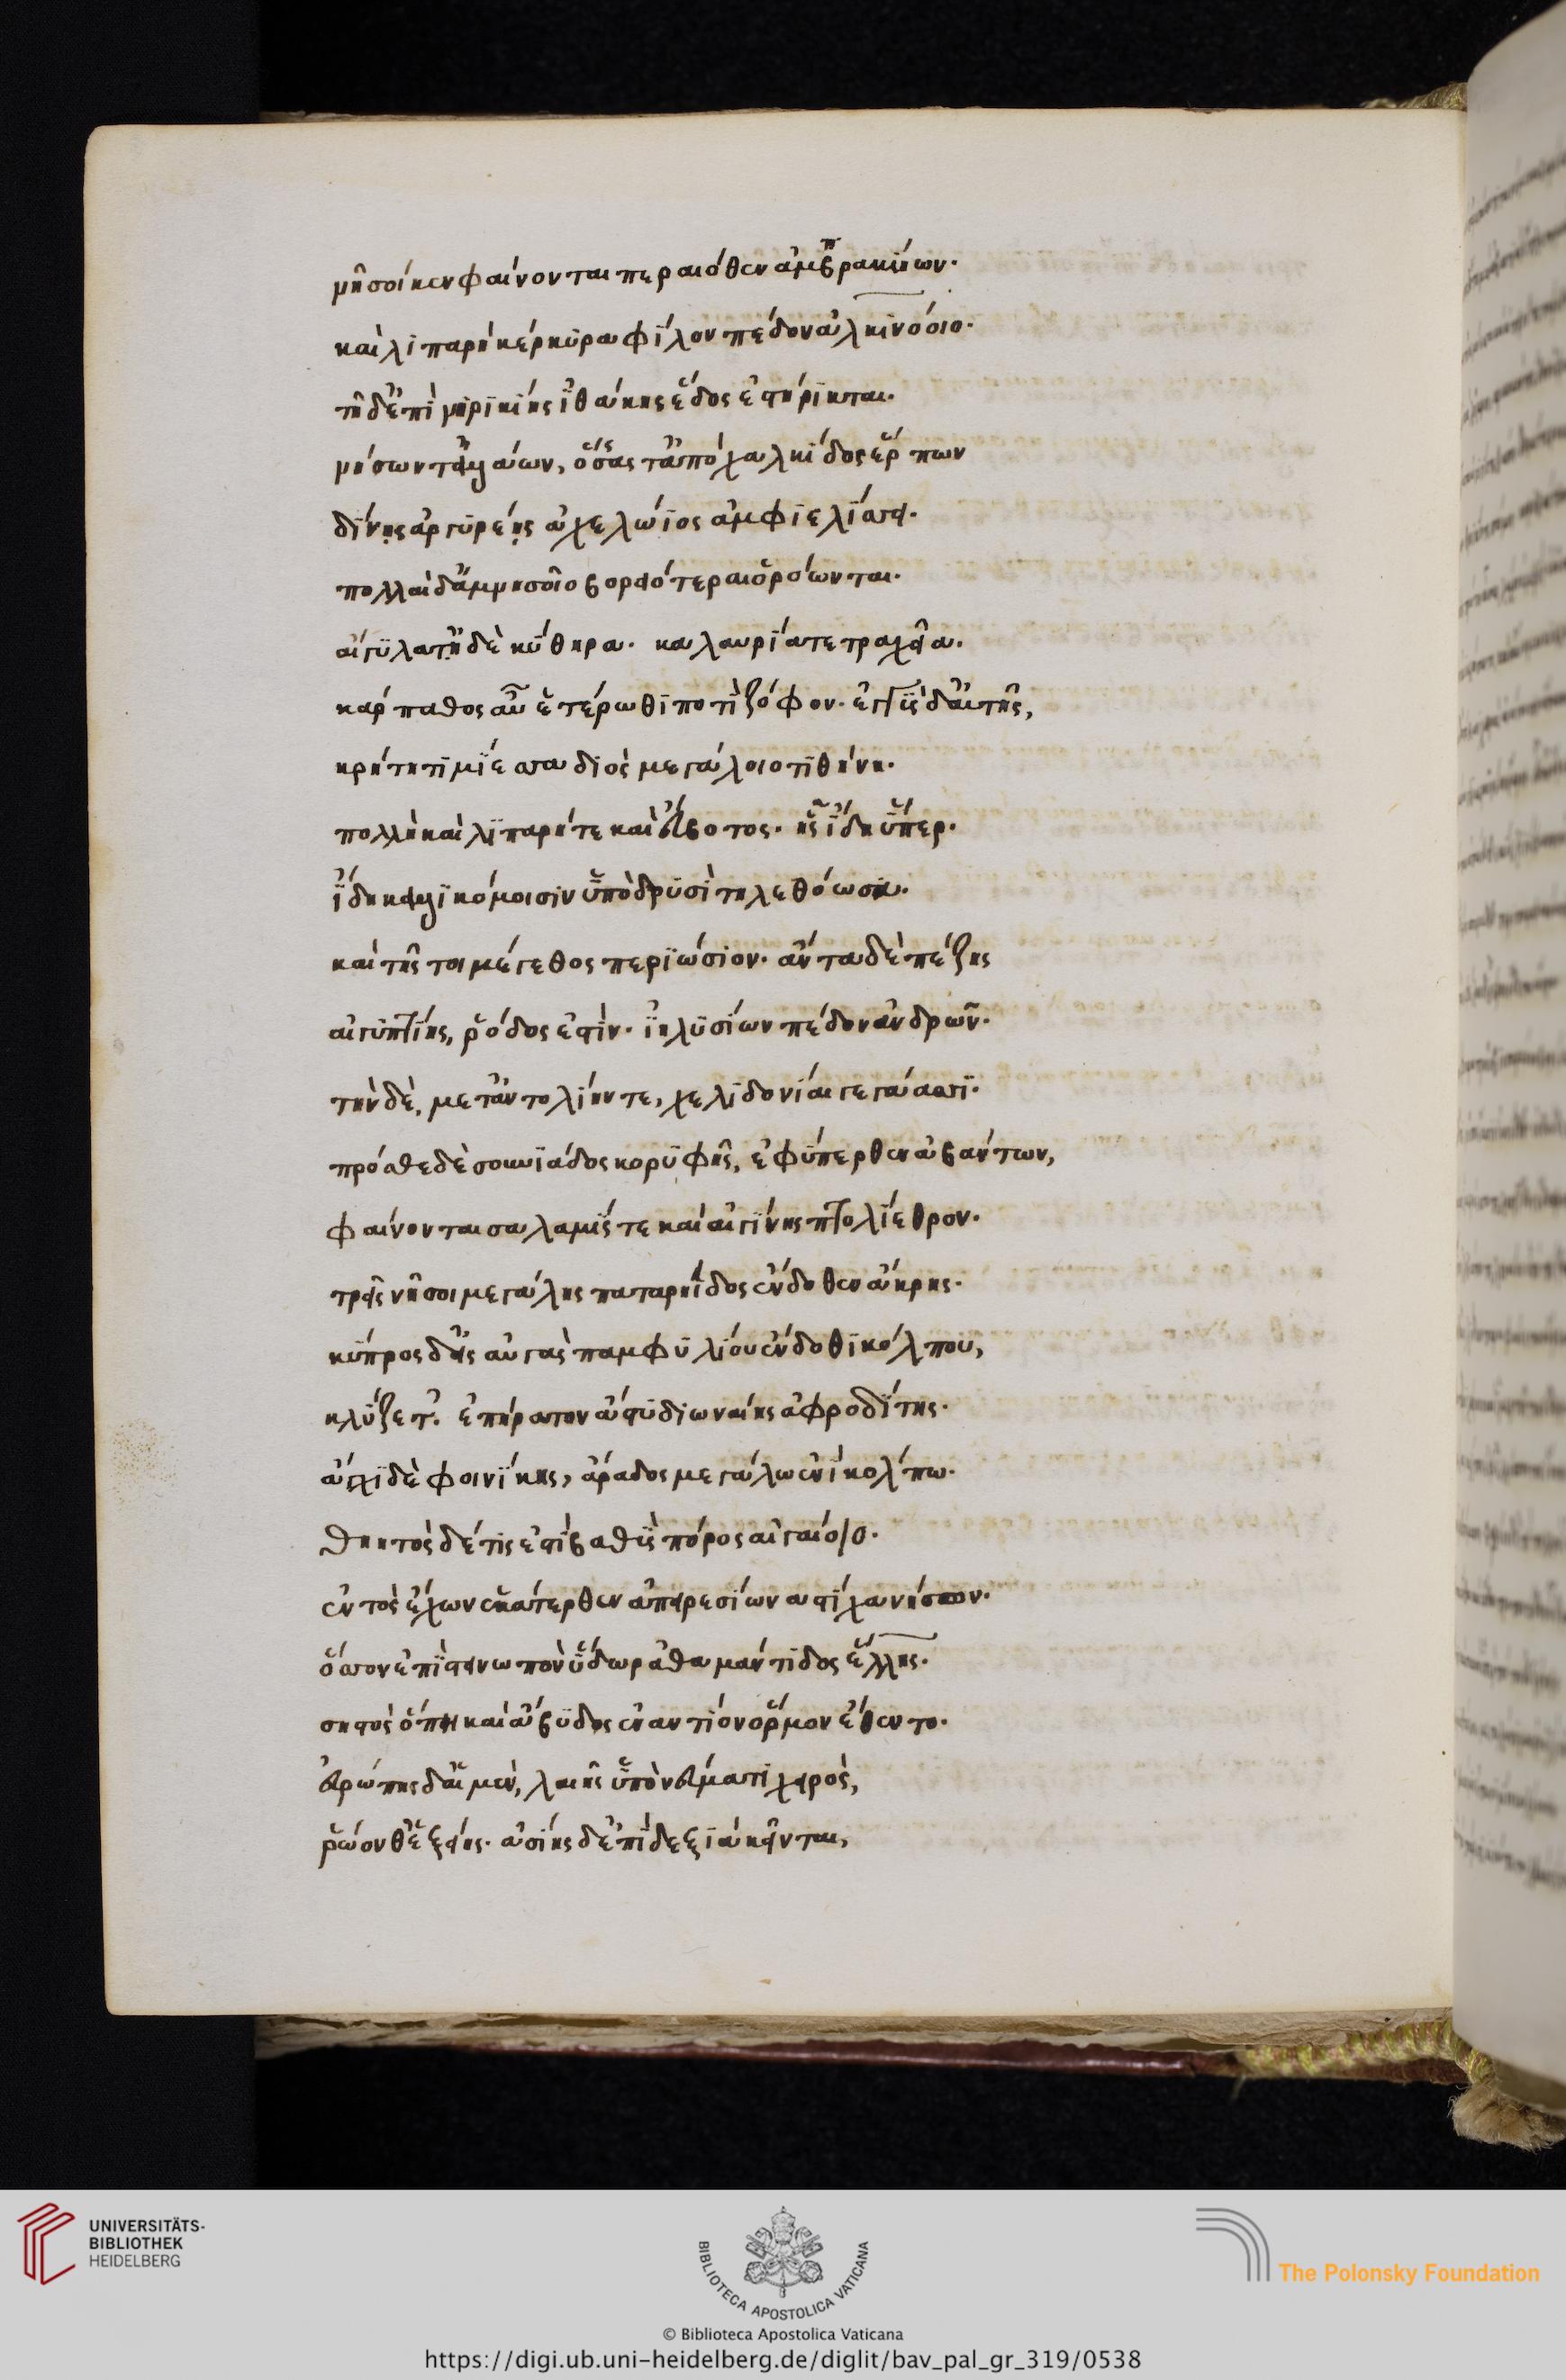 νῆσοί κεν φαίνονται περαιόθεν ἀμβρακιήων·
καὶ λιπαρὴ κέρκυρα φίλον πέδον ἀλκινόοιο·
τῇ δ' ἐπὶ νηρικίης ἰθάκης ἕδος ἐστήρικται·
νήσων τ' ἀλλάων, ὅσσας τ' ἀπὸ χαλκίδος ἕρπων
δίνῃς ἀργυρέῃς ἀχελώϊος ἀμφιελίσσει·
πολλαὶ δ' ἀμνησοῖο βορειότεραι ὁρόωνται·
αἴγυλα τ' ἠδὲ κύθηρα· καλαυρία τε τραχεῖα·
κάρπαθος αὖ ἑτέρωθι ποτὶ ζόφον· ἐγγὺς δ' αὐτῆς,
κρήτη τιμίεσσα διὸς μεγάλοιο τιθήνη·
πολλὴ καὶ λιπαρή τε καὶ εὔβοτος· ἧς ἴδη ὕπερ·
ἴδη καλλικόμοισιν ὑπὸ δρυσὶ τηλεθόωσα·
καὶ τῆς τοι μέγεθος περιώσιον· ἄντα δὲ πέζης
αἰγυπτίης, ῥόδος ἐστίν· ἰηλυσίων πέδον ἀνδρῶν·
τὴν δὲ, μετ' ἀντολίην τε, χελιδονίαι γεγάασσι·
πρόσθε δὲ σουνιάδος κορυφῆς, ἐφύπερθεν ἀβάντων,
φαίνονται σαλαμίς τε καὶ αἰγίνης πτολίεθρον·
τρεῖς νῆσοι μεγάλης παταρηΐδος ἔνδοθεν ἄκρης·
κύπρος δ' εἰς αὐγὰς παμφυλίου ἔνδοθι κόλπου,
κλύζετ'· ἐπήρατον ἄστυ διωναίης ἀφροδίτης·
ἄγχι δὲ φοινίκης, ἄραδος μεγάλω ἐνὶ κόλπω·
θηητὸς δέ τις ἐστὶ βαθὺς πόρος αἰγαίοιο·
ἐντὸς ἔχων ἑκάτερθεν ἀπειρεσίων στίχα νήσων·
ὅσσον ἐπὶ στεινωπὸν ὕδωρ ἀθαμαντίδος ἕλλης·
σηστὸς ὅπη καὶ ἄβυδος ἐναντίον ὅρμον ἔθεντο·
εὐρώπης δ' αἱ μὲν, λαιῆς ὑπὸ νεύματι χειρὸς,
ῥώονθ' ἑξείης· ἀσίης δ' ἐπὶ δεξιὰ κεῖνται,
UNIVERSITÄTS-
BIBLIOTHEK
HEIDELBERG
BIBLIOTECA APOSTOLICA VATICANA
The Polonsky Foundation
© Biblioteca Apostolica Vaticana
https://digi.ub.uni-heidelberg.de/diglit/bav_pal_gr_319/0538